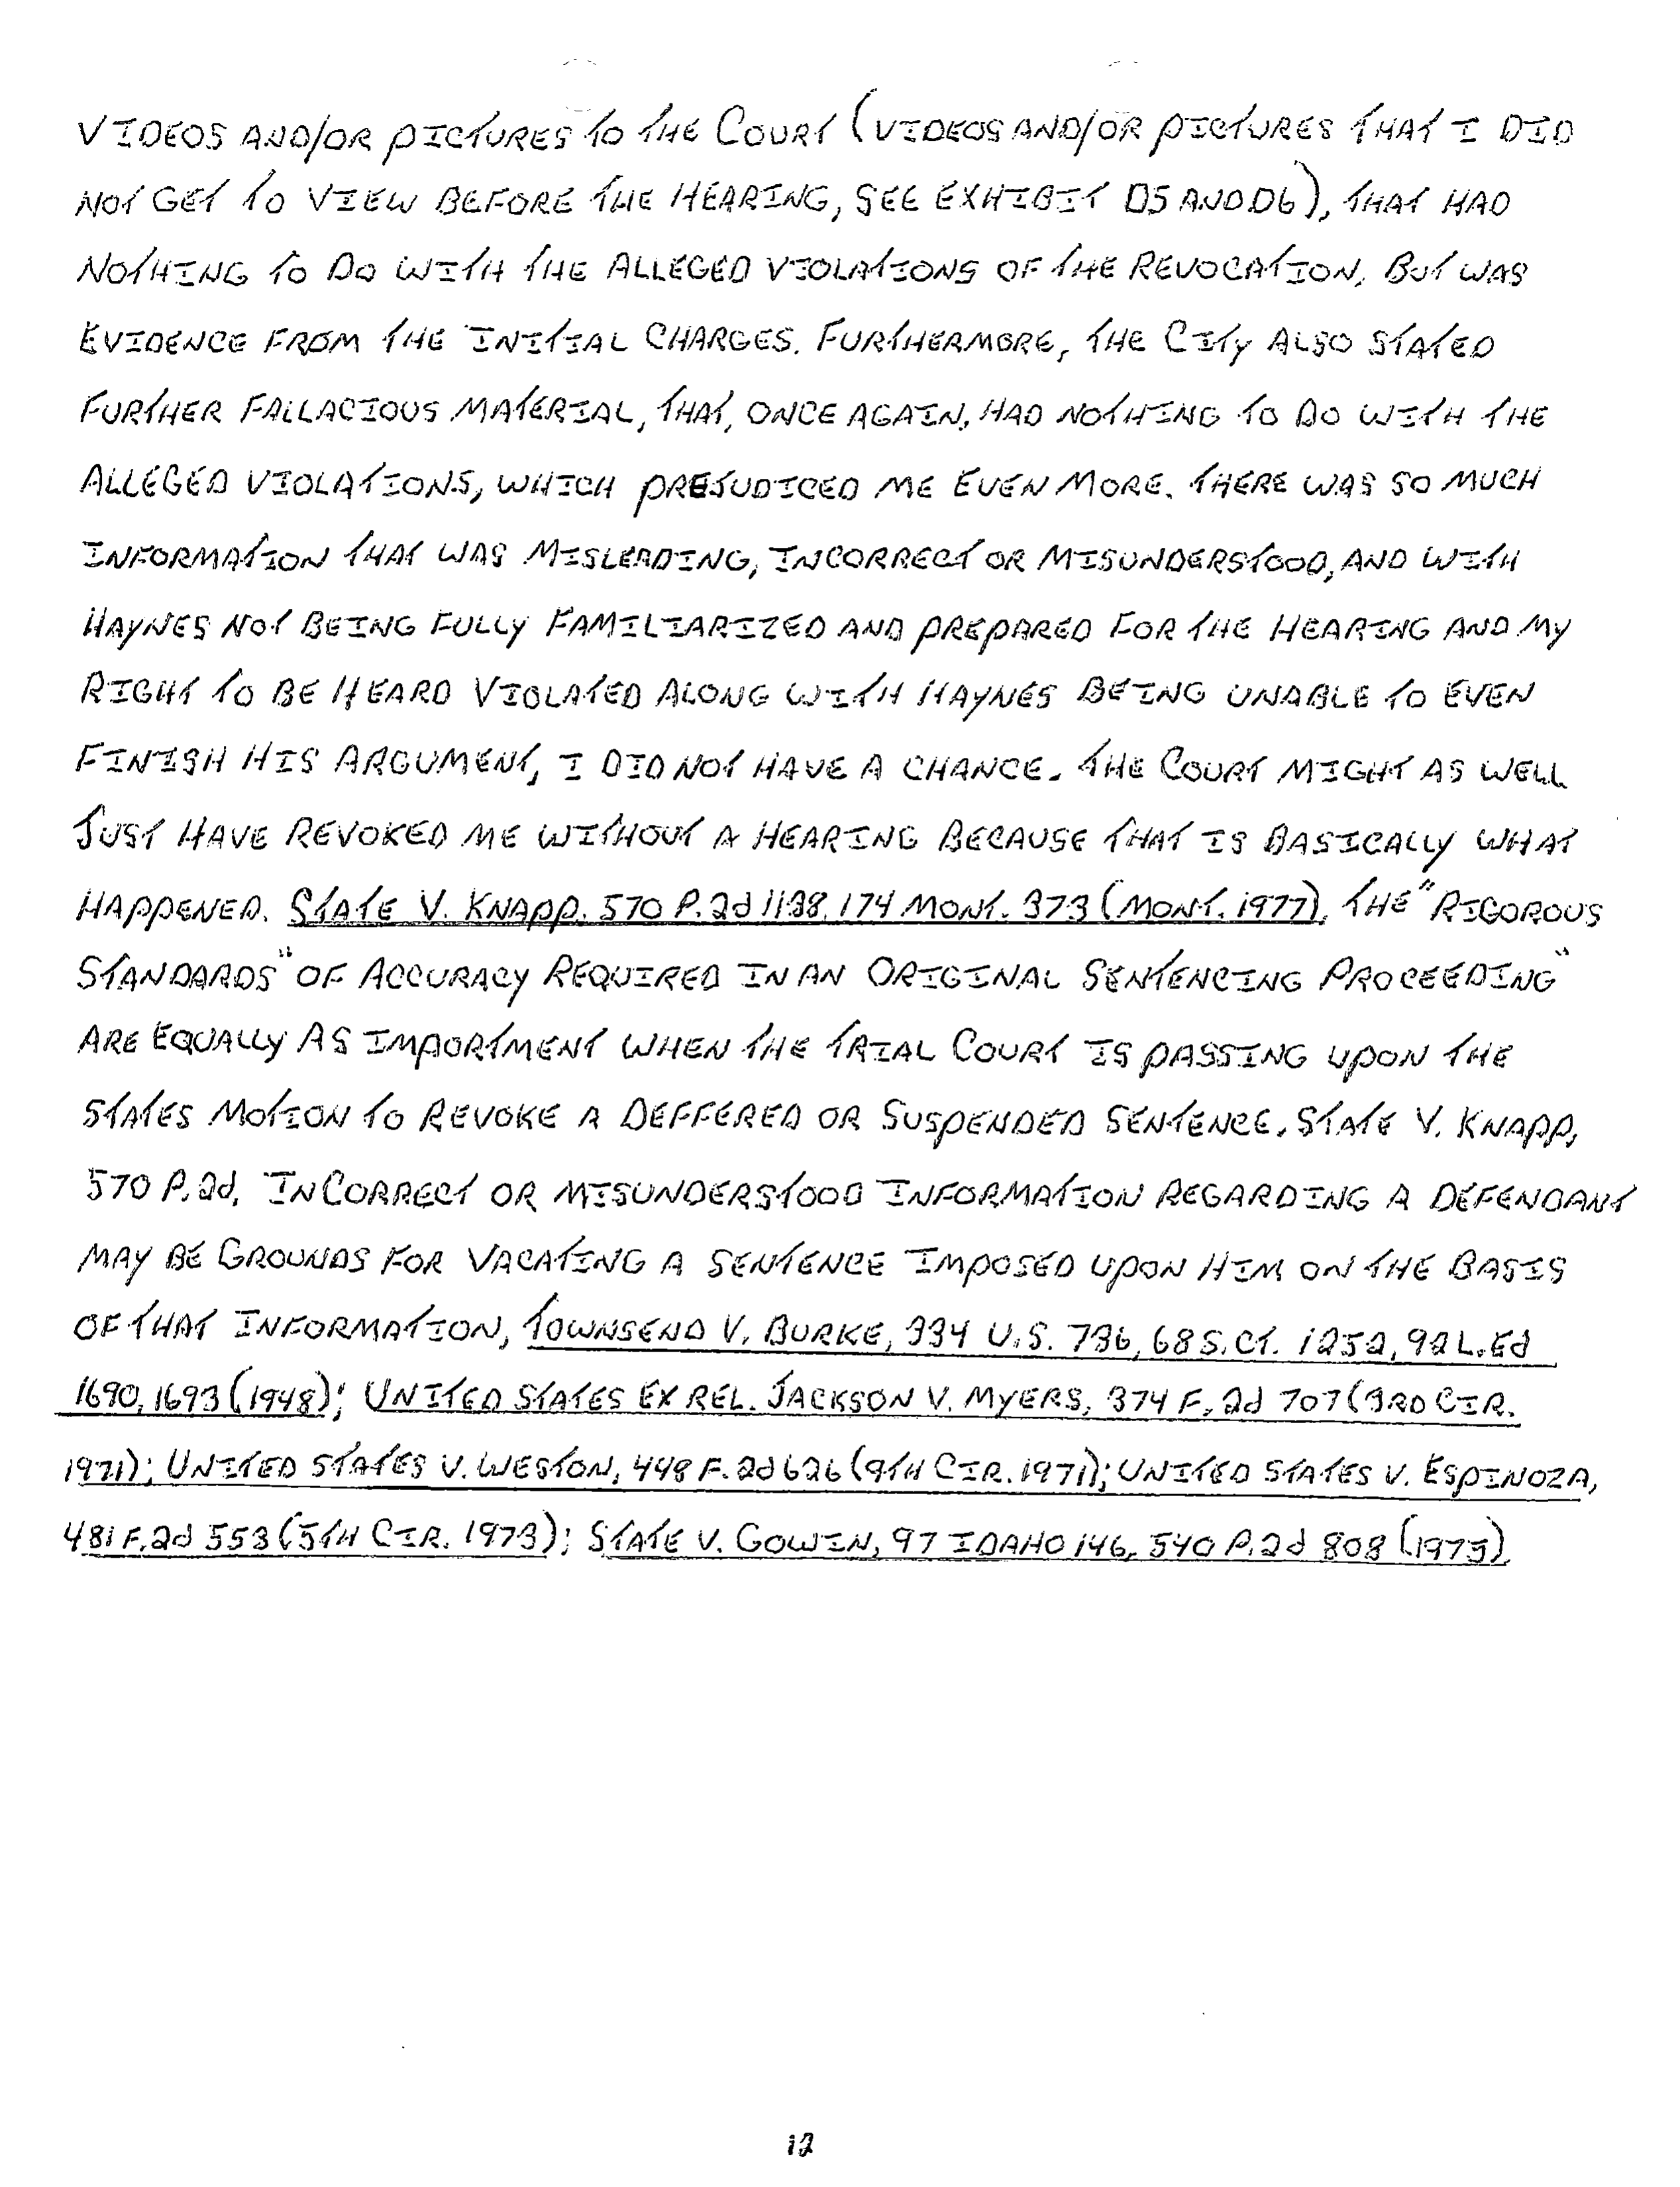 VIDEOS AND/OR PICTURES TO THE COURT (VIDEOS AND/OR PICTURES THAT I DID
NOT GET TO VIEW BEFORE THE HEARING, SEE EXHIBIT D5 AND D6), THAT HAD
NOTHING TO DO WITH THE ALLEGED VIOLATIONS OF THE REVOCATION, BUT WAS
EVIDENCE FROM THE INITIAL CHARGES. FURTHERMORE, THE CITY ALSO STATED
FURTHER FALLACIOUS MATERIAL, THAT, ONCE AGAIN, HAD NOTHING TO DO WITH THE
ALLEGED VIOLATIONS, WHICH PREJUDICED ME EVEN MORE. THERE WAS SO MUCH
INFORMATION THAT WAS MISLEADING, INCORRECT OR MISUNDERSTOOD, AND WITH
HAYNES NOT BEING FULLY FAMILIARIZED AND PREPARED FOR THE HEARING AND MY
RIGHT TO BE HEARD VIOLATED ALONG WITH HAYNES BEING UNABLE TO EVEN
FINISH HIS ARGUMENT, I DID NOT HAVE A CHANCE. THE COURT MIGHT AS WELL
JUST HAVE REVOKED ME WITHOUT A HEARING BECAUSE THAT IS BASICALLY WHAT
HAPPENED. STATE V. KNAPP, 570 P.2d 1138, 174 MONT. 373 (MONT. 1977), THE "RIGOROUS
STANDARDS" OF ACCURACY REQUIRED IN AN ORIGINAL SENTENCING PROCEEDING"
ARE EQUALLY AS IMPORTMENT WHEN THE TRIAL COURT IS PASSING UPON THE
STATES MOTION TO REVOKE A DEFFERED OR SUSPENDED SENTENCE, STATE V. KNAPP,
570 P.2d, INCORRECT OR MISUNDERSTOOD INFORMATION REGARDING A DEFENDANT
MAY BE GROUNDS FOR VACATING A SENTENCE IMPOSED UPON HIM ON THE BASIS
OF THAT INFORMATION, TOWNSEND V. BURKE, 334 U.S. 736, 68 S.CT. 1252, 92 L.Ed
1690, 1693 (1948); UNITED STATES EX REL. JACKSON V. MYERS, 374 F.2d 707 (3RD CIR.
1971); UNITED STATES V. WESTON, 448 F.2d 626 (9TH CIR. 1971); UNITED STATES V. ESPINOZA,
481 F.2d 553 (5TH CIR. 1973); STATE V. GOWIN, 97 IDAHO 146, 540 P.2d 808 (1975).
12